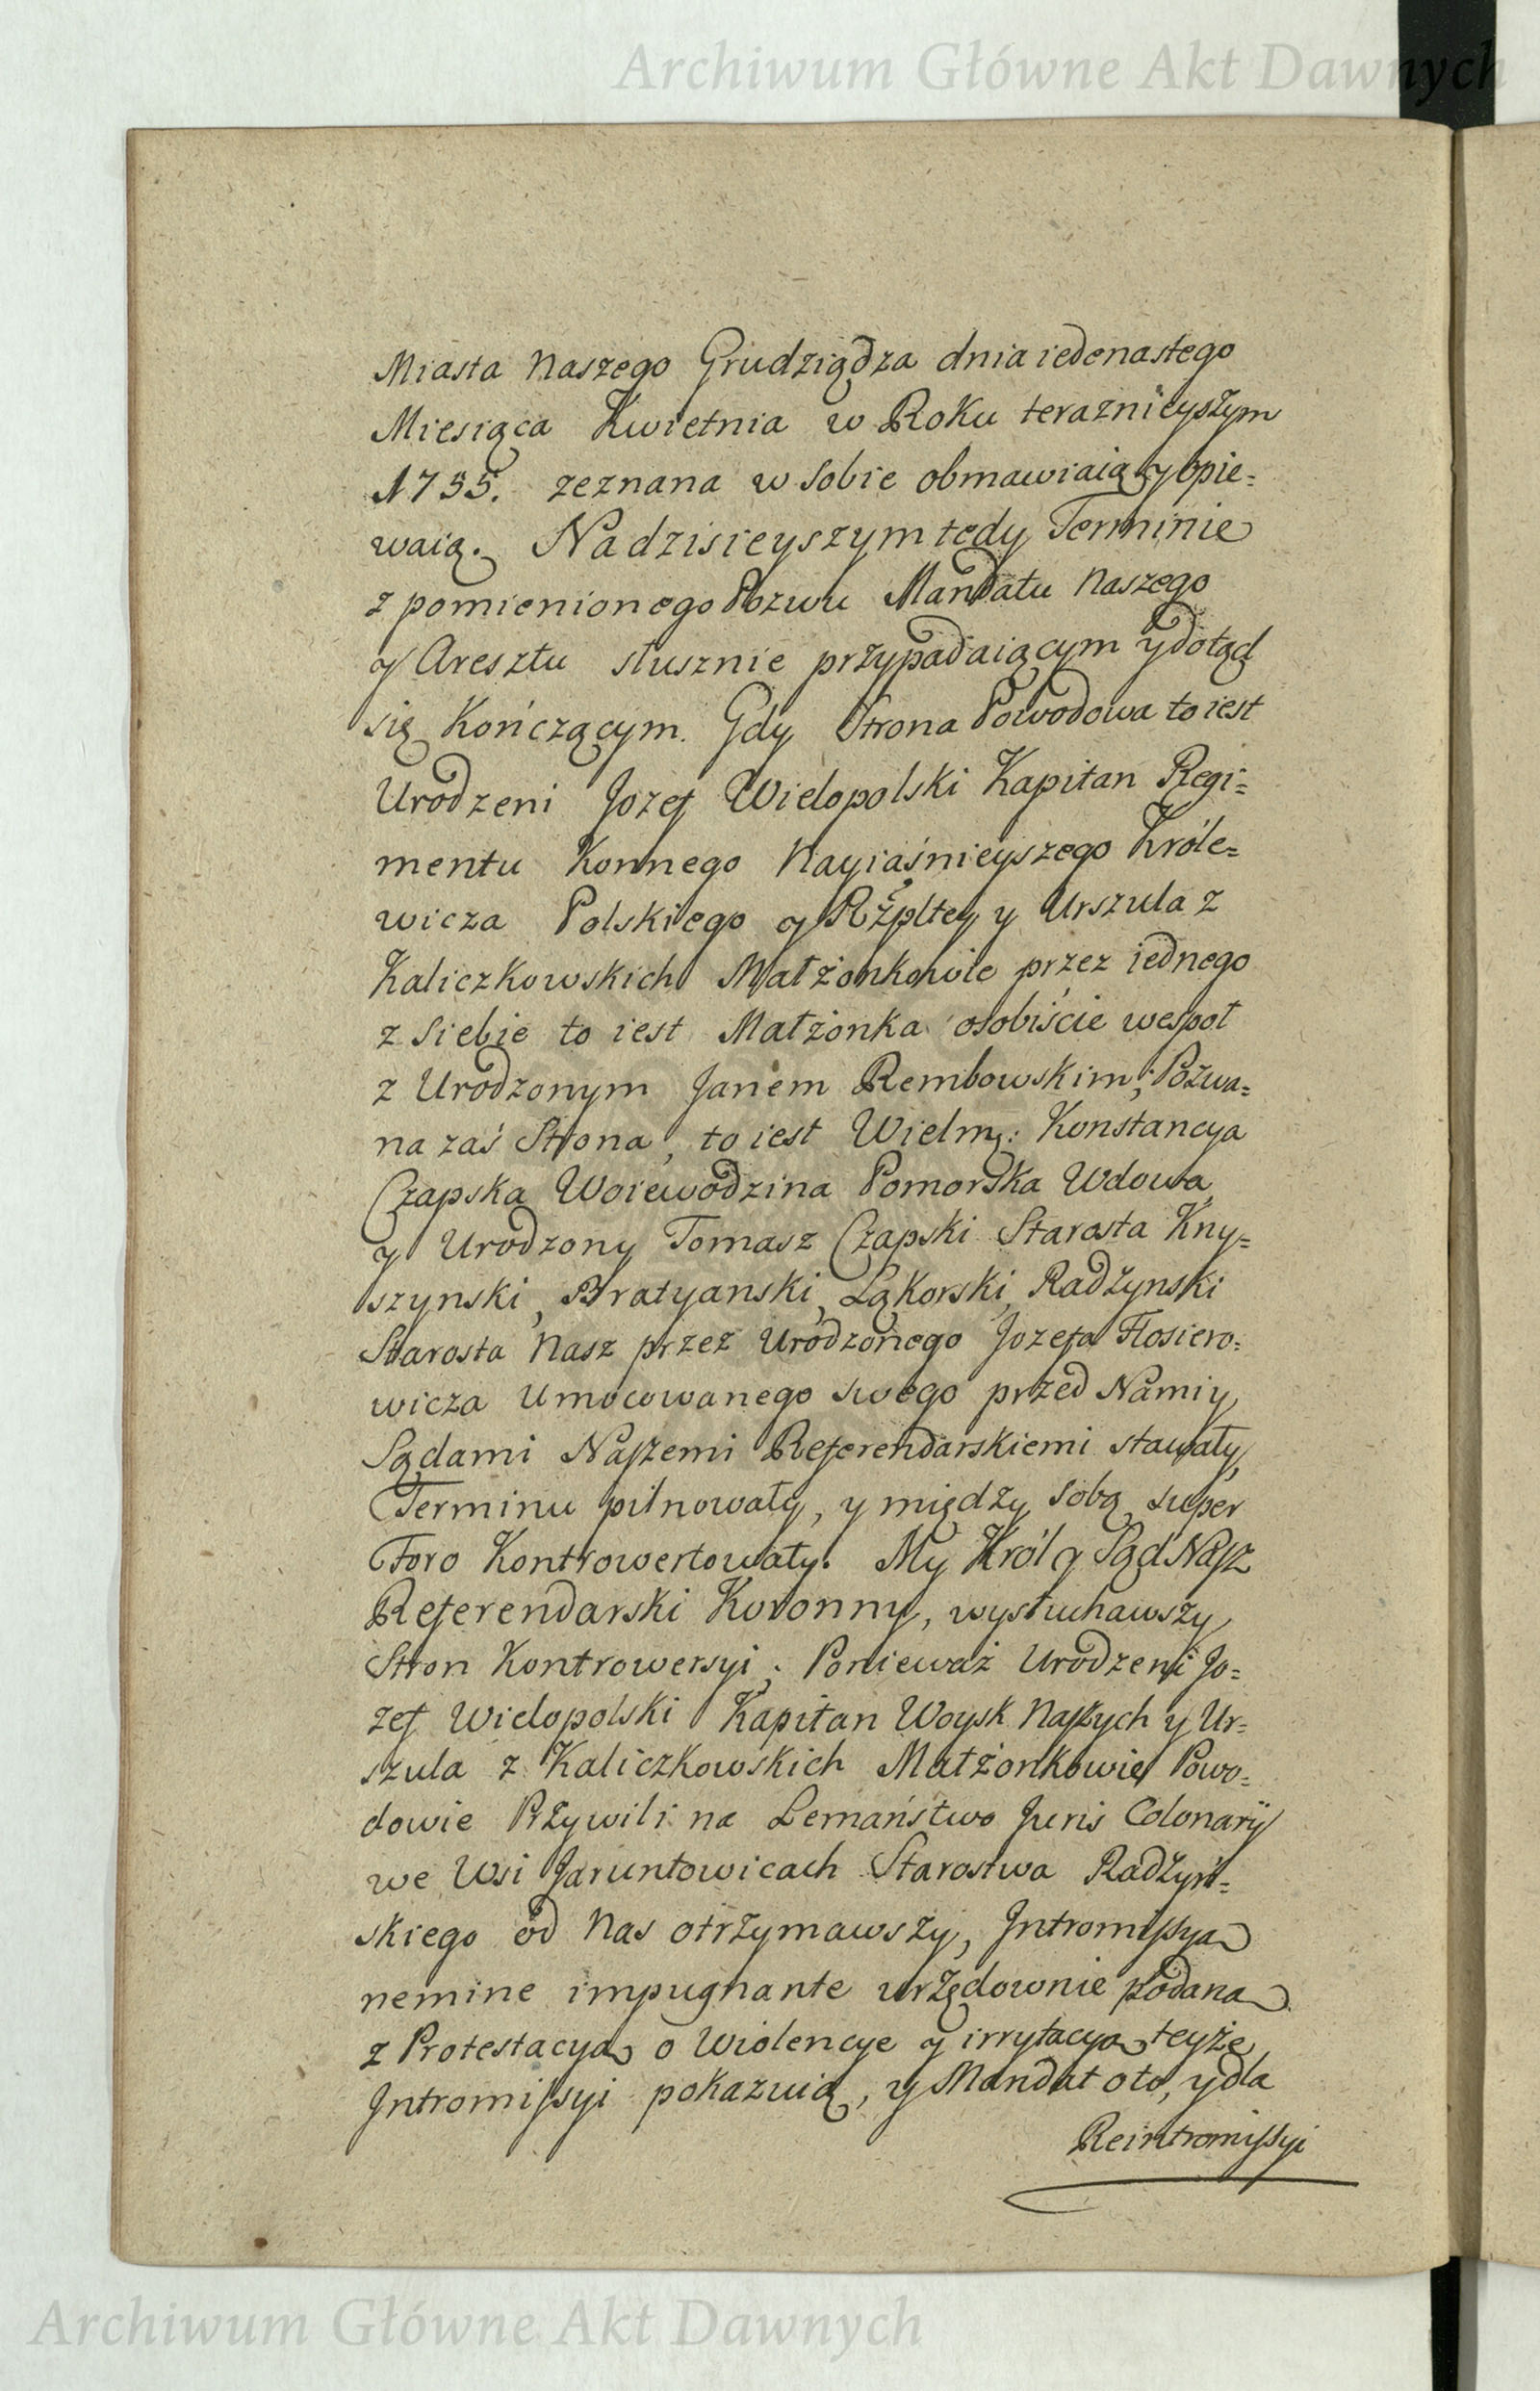 Archiwum Główne Akt Dawnych
Miasta Naszego Grudziądza dnia iedenastego
Miesiąca Kwietnia w Roku teraznieyszym
1755. zeznana w sobie obmawiaią y opie=
waią. Na dzisieyszym tedy Terminie
z pomienionego Pozwu Mandatu Naszego
y Aresztu słusznie przypadaiącym y dotąd
się Kończącym. Gdy Strona Powodowa to iest
Urodzeni Jozef Wielopolski Kapitan Regi=
mentu Konnego Nayiaśnieyszego Króle=
wicza Polskiego y Rzpltey y Urszula z
Kaliczkowskich Małżonkowie przez iednego
z siebie to iest Małżonka osobiście wespoł
z Urodzonym Janem Rembowskim; Pozwa=
na zaś Strona, to iest Wielm: Konstancya
Czapska Woiewodzina Pomorska Wdowa,
y Urodzony Tomasz Czapski Starosta Kny=
szynski, Bratyanski, Ląkorski, Radzynski
Starosta Nasz przez Urodzonego Jozefa Flosiero=
wicza Umocowanego swego przed Nami y
Sądami Naszemi Referendarskiemi stawały,
Terminu pilnowały, y między sobą super
Foro Kontrowertowały. My Król y Sąd Nasz
Referendarski Koronny, wysłuchawszy
Stron Kontrowersyi. Ponieważ Urodzeni Jo=
zef Wielopolski Kapitan Woysk Naszych y Ur=
szula z Kaliczkowskich Małżonkowie Powo=
dowie Przywili na Lemaństwo Juris Colonarij
we Wsi Jaruntowicach Starostwa Radzyń=
skiego od Nas otrzymawszy, Intromissyą
nemine impugnante urzędownie podaną
z Protestacyą o Wiolencye y irrytacyą teyże
Intromissyi pokazuią, y Mandat oto, y dla
Reintromissyi
Archiwum Główne Akt Dawnych